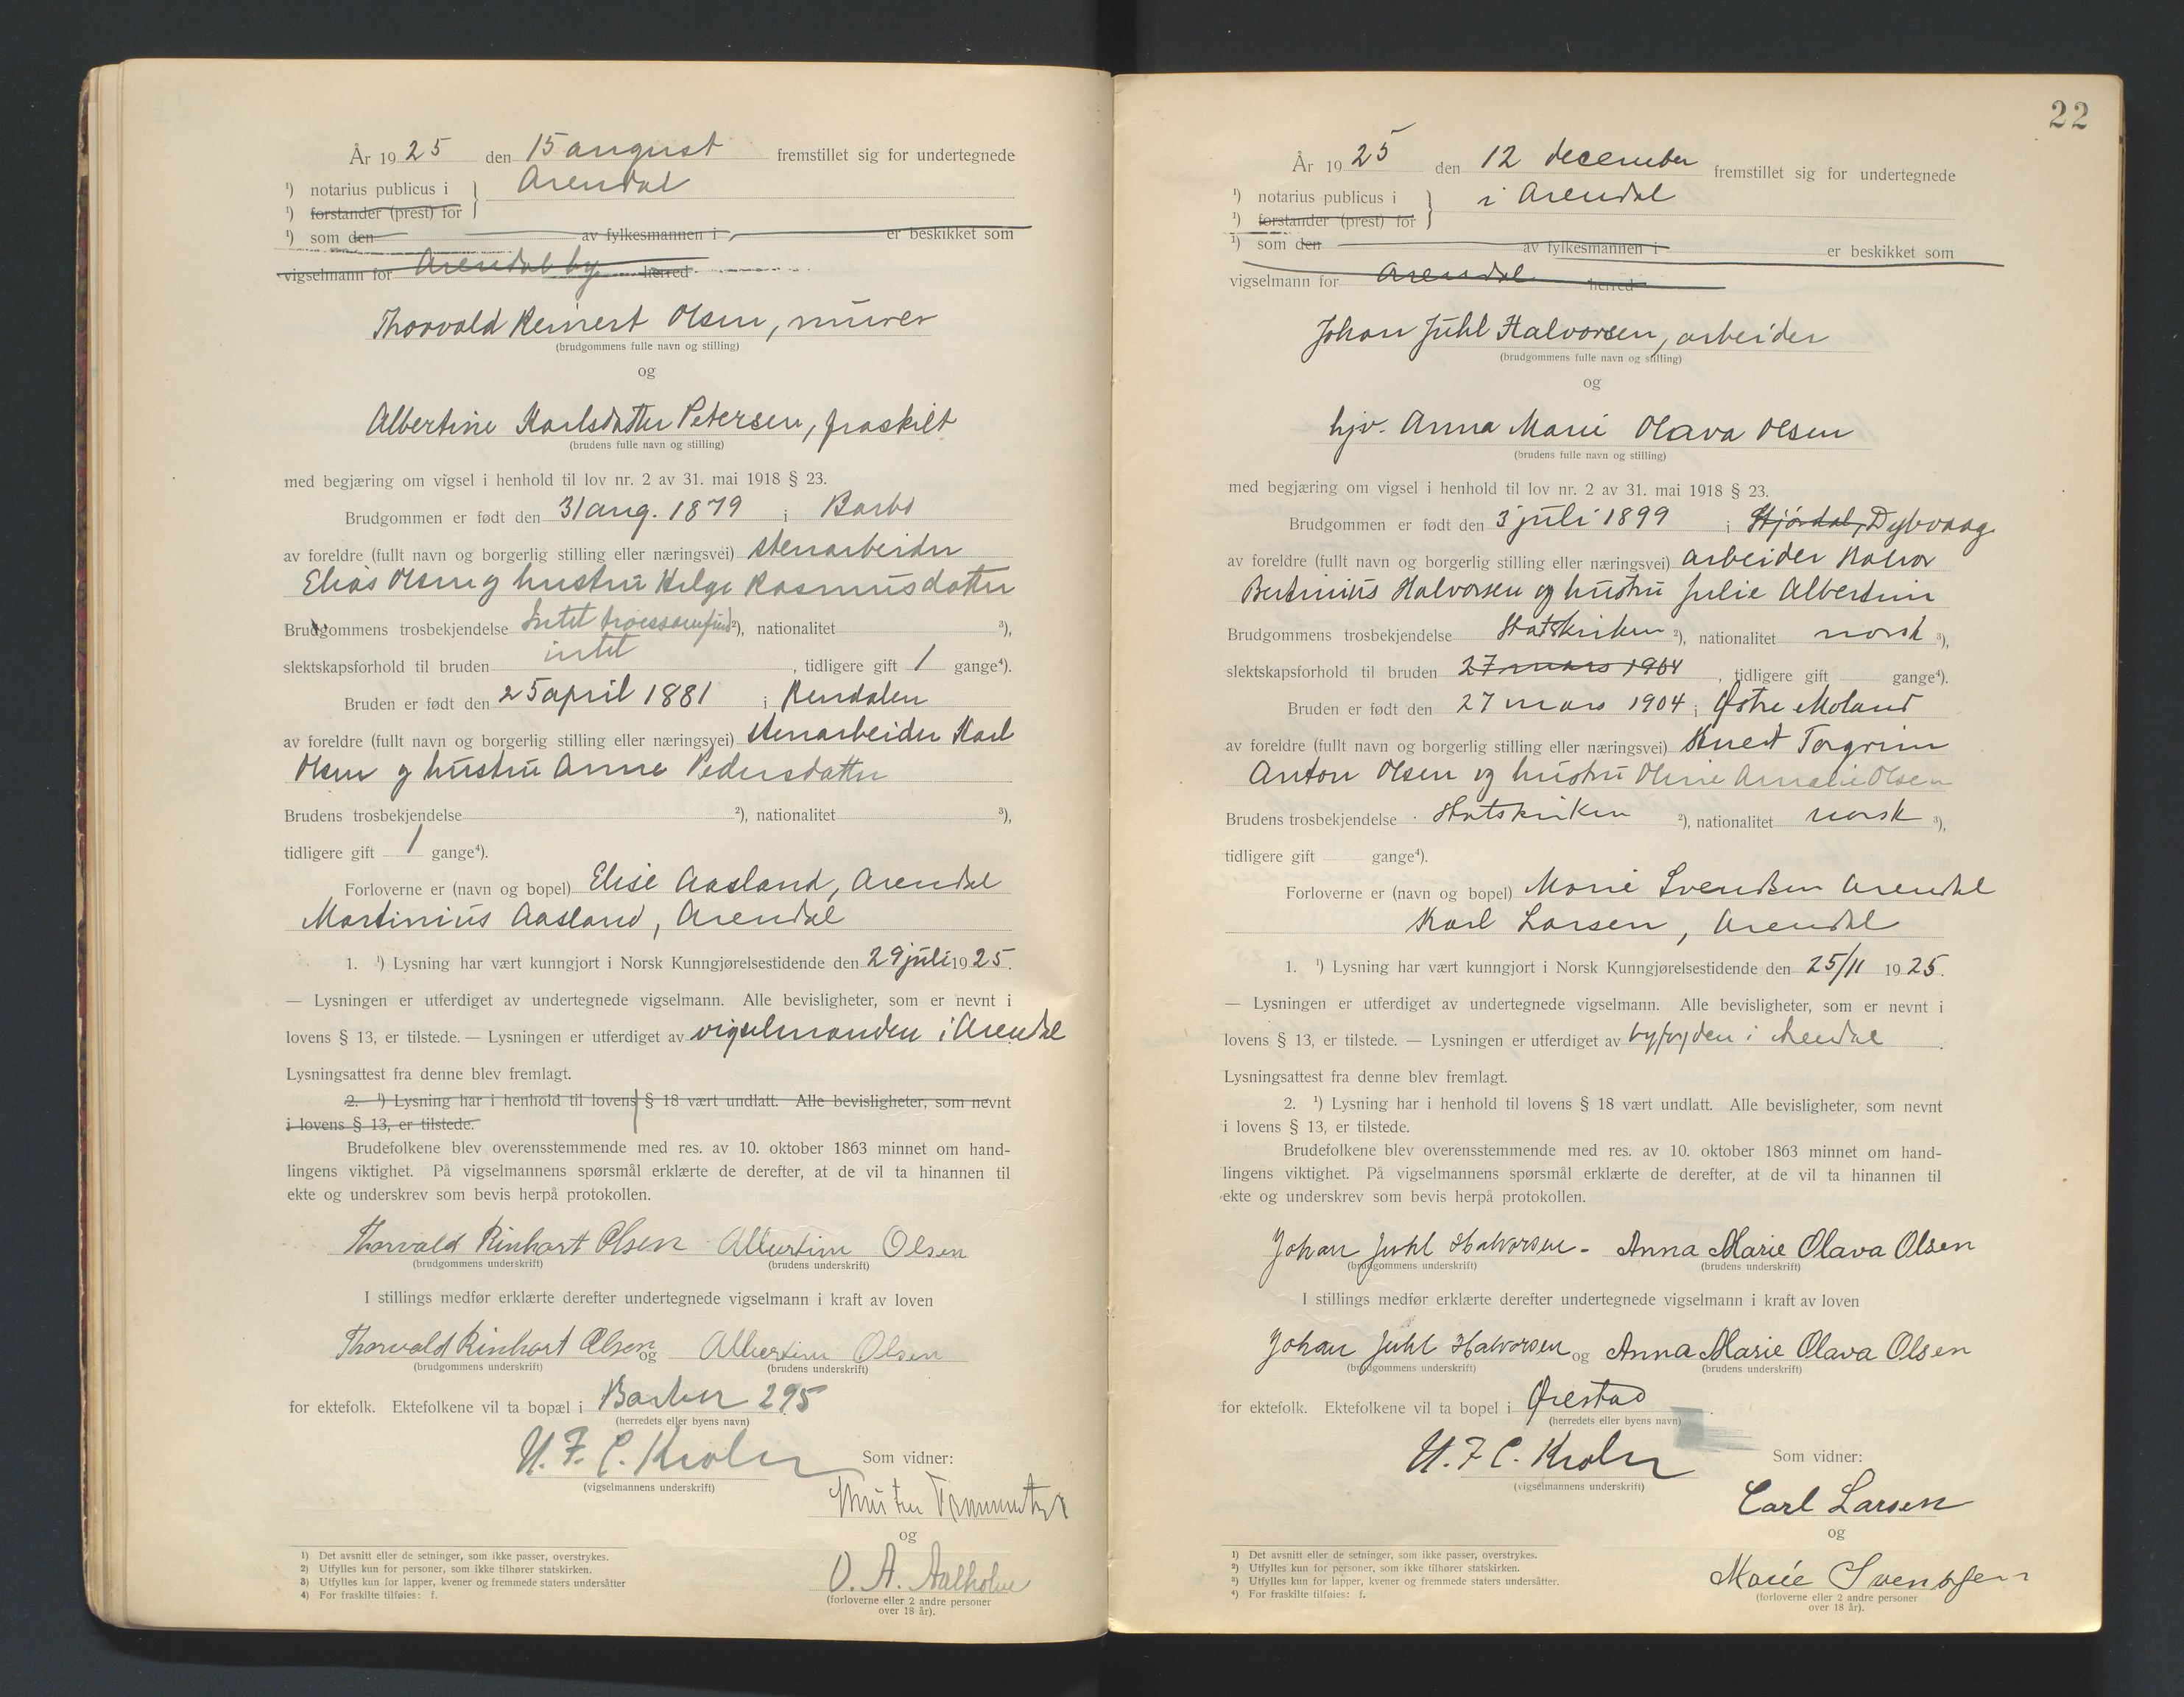 År 1925 den 15 august fremstillet sig for undertegnede
¹) notarius publicus i } Arendal
¹) forstander (prest) for
¹) som den av fylkesmannen i er beskikket som
vigselmann for Arendal by herred
Thorvald Reinert Olsen, murer
(brudgommens fulle navn og stilling)
og
Albertine Karlsdatter Petersen, fraskilt
(brudens fulle navn og stilling)
med begjæring om vigsel i henhold til lov nr. 2 av 31. mai 1918 § 23.
Brudgommen er født den 31 aug. 1879 i Barbo
av foreldre (fullt navn og borgerlig stilling eller næringsvei) stenarbeider
Elias Olsen og hustru Helge Rasmusdatter
Brudgommens trosbekjendelse Intet troessamfund ²), nationalitet ³),
slektskapsforhold til bruden intet , tidligere gift 1 gange⁴).
Bruden er født den 25 april 1881 i Rendalen
av foreldre (fullt navn og borgerlig stilling eller næringsvei) stenarbeider Karl
Olsen og hustru Anne Pedersdatter
Brudens trosbekjendelse ²), nationalitet ³),
tidligere gift 1 gange⁴).
Forloverne er (navn og bopel) Elise Aasland, Arendal
Martinius Aasland, Arendal
1. ¹) Lysning har vært kunngjort i Norsk Kunngjørelsestidende den 29 juli 1925.
— Lysningen er utferdiget av undertegnede vigselmann. Alle bevisligheter, som er nevnt i
lovens § 13, er tilstede. — Lysningen er utferdiget av vigselmanden i Arendal
Lysningsattest fra denne blev fremlagt.
2. ¹) Lysning har i henhold til lovens § 18 vært undlatt. Alle bevisligheter, som nevnt
i lovens § 13, er tilstede.
Brudefolkene blev overensstemmende med res. av 10. oktober 1863 minnet om hand-
lingens viktighet. På vigselmannens spørsmål erklærte de derefter, at de vil ta hinannen til
ekte og underskrev som bevis herpå protokollen.
Thorvald Rinhart Olsen Albertine Olsen
(brudgommens underskrift) (brudens underskrift)
I stillings medfør erklærte derefter undertegnede vigselmann i kraft av loven
Thorvald Rinhart Olsen og Albertine Olsen
(brudgommens underskrift) (brudens underskrift)
for ektefolk. Ektefolkene vil ta bopæl i Barbu 295
(herredets eller byens navn)
Som vidner:
(vigselmannens underskrift)
og
O. A. Aalholm
(forloverne eller 2 andre personer
over 18 år).
1) Det avsnitt eller de setninger, som ikke passer, overstrykes.
2) Utfylles kun for personer, som ikke tilhører statskirken.
3) Utfylles kun for lapper, kvener og fremmede staters undersåtter
4) For fraskilte tilføies: f.
22
År 1925 den 12 december fremstillet sig for undertegnede
¹) notarius publicus i } i Arendal
¹) forstander (prest) for
¹) som den av fylkesmannen i er beskikket som
vigselmann for Arendal herred
Johan Juhl Halvorsen, arbeider
(brudgommens fulle navn og stilling)
og
hjv. Anna Marie Olava Olsen
(brudens fulle navn og stilling)
med begjæring om vigsel i henhold til lov nr. 2 av 31. mai 1918 § 23.
Brudgommen er født den 3 juli 1899 i Stjørdal, Dybvaag
av foreldre (fullt navn og borgerlig stilling eller næringsvei) arbeider Halvor
Bertinius Halvorsen og hustru Julie Albertine
Brudgommens trosbekjendelse Statskirken ²), nationalitet norsk ³),
slektskapsforhold til bruden 27 mars 1904 , tidligere gift gange⁴).
Bruden er født den 27 mars 1904 i Østre Moland
av foreldre (fullt navn og borgerlig stilling eller næringsvei) Knut Torgrim
Anton Olsen og hustru Oline Amalie Olsen
Brudens trosbekjendelse Statskirken ²), nationalitet norsk ³),
tidligere gift gange⁴).
Forloverne er (navn og bopel) Marie Svendsen Arendal
Karl Larsen, Arendal
1. ¹) Lysning har vært kunngjort i Norsk Kunngjørelsestidende den 25/11 1925.
— Lysningen er utferdiget av undertegnede vigselmann. Alle bevisligheter, som er nevnt i
lovens § 13, er tilstede. — Lysningen er utferdiget av byfogden i Arendal.
Lysningsattest fra denne blev fremlagt.
2. ¹) Lysning har i henhold til lovens § 18 vært undlatt. Alle bevisligheter, som nevnt
i lovens § 13, er tilstede.
Brudefolkene blev overensstemmende med res. av 10. oktober 1863 minnet om hand-
lingens viktighet. På vigselmannens spørsmål erklærte de derefter, at de vil ta hinannen til
ekte og underskrev som bevis herpå protokollen.
Johan Juhl Halvorsen - Anna Marie Olava Olsen
(brudgommens underskrift) (brudens underskrift)
I stillings medfør erklærte derefter undertegnede vigselmann i kraft av loven
Johan Juhl Halvorsen og Anna Marie Olava Olsen
(brudgommens underskrift) (brudens underskrift)
for ektefolk. Ektefolkene vil ta bopel i Øiestad.
(herredets eller byens navn)
Som vidner:
(vigselmannens underskrift)
Carl Larsen
og
Marie Svendsen
(forloverne eller 2 andre personer
over 18 år).
1) Det avsnitt eller de setninger, som ikke passer, overstrykes.
2) Utfylles kun for personer, som ikke tilhører statskirken.
3) Utfylles kun for lapper, kvener og fremmede staters undersåtter.
4) For fraskilte tilføies: f.